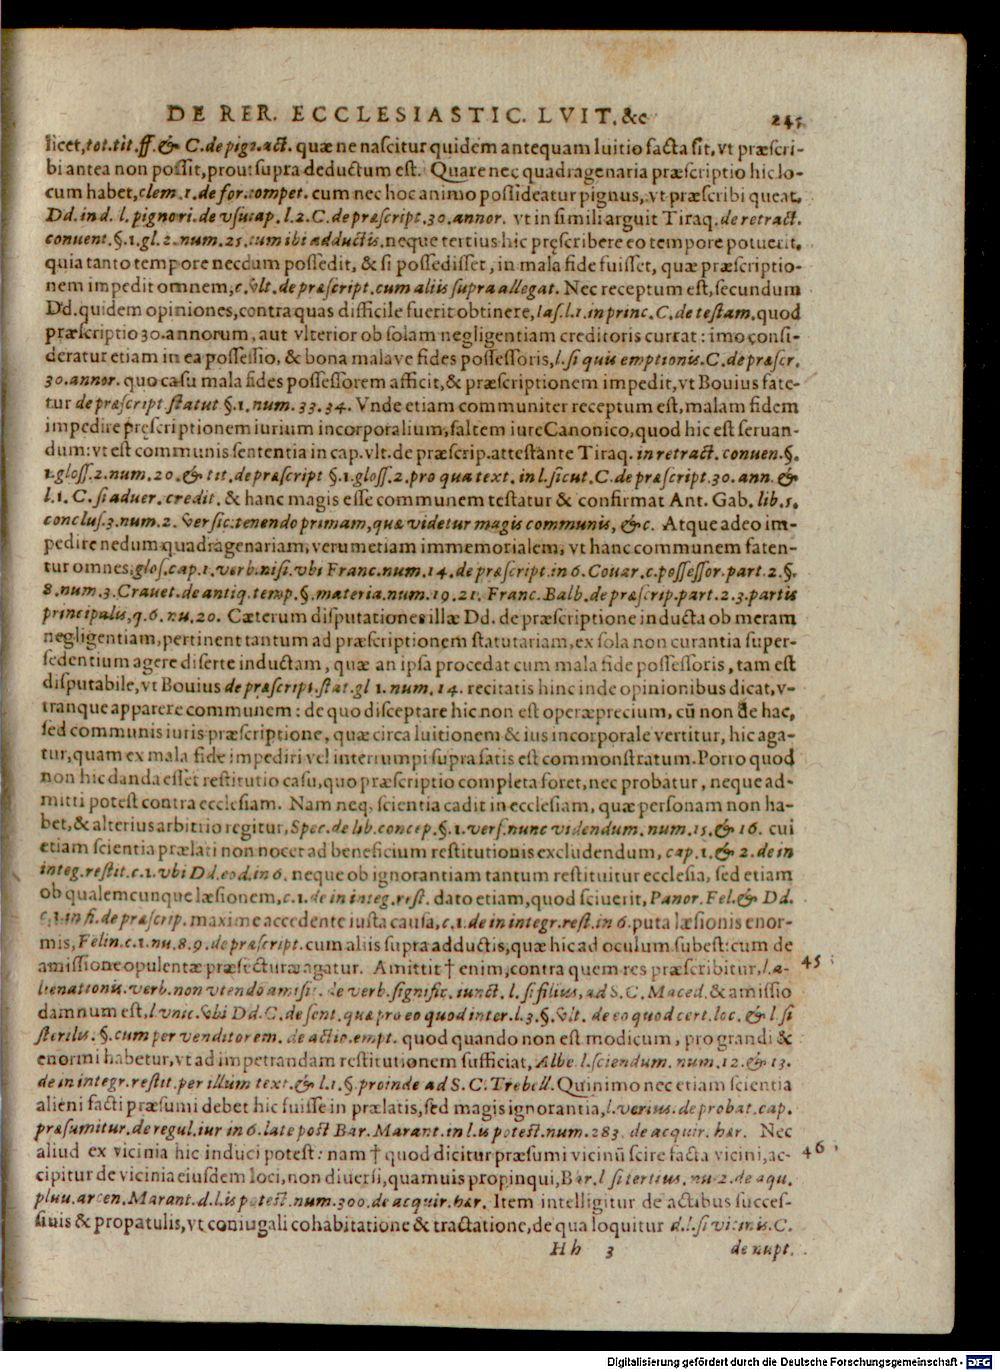 DE RER. ECCLESIASTIC. LVIT. &c 245
licet, tot. tit. ff. & C. de pign. act. quæ ne nascitur quidem antequam luitio facta sit, vt præscri-
bi antea non possit, prout supra deductum est. Quare nec quadragenaria præscriptio hic lo-
cum habet, clem. 1. de for. compet. cum nec hoc animo possideatur pignus, vt præscribi queat,
Dd. in d. l. pignori. de vsucap. l. 2. C. de præscript. 30. annor. vt in simili arguit Tiraq. de retract.
conuent. §. 1. gl. 2. num. 25. cum ibi adductis. neque tertius hic pręscribere eo tempore potuerit,
quia tanto tempore necdum possedit, & si possedisset, in mala fide fuisset, quæ præscriptio-
nem impedit omnem, c. vlt. de præscript. cum aliis supra allegat. Nec receptum est, secundum
Dd. quidem opiniones, contra quas difficile fuerit obtinere, Ias. l. 1. in princ. C. de testam. quod
præscriptio 30. annorum, aut vlterior ob solam negligentiam creditoris currat: imo consi-
deratur etiam in ea possessio, & bona malave fides possessoris, l. si quis emptionis. C. de præscr.
30. annor. quo casu mala fides possessorem afficit, & præscriptionem impedit, vt Bouius fate-
tur de præscript statut §. 1. num. 33. 34. Vnde etiam communiter receptum est, malam fidem
impedire pręscriptionem iurium incorporalium, saltem iure Canonico, quod hic est seruan-
dum: vt est communis sententia in cap. vlt. de præscrip. attestante Tiraq. in retract. conuen. §.
1. gloss. 2. num. 20. & tit. de præscript §. 1. gloss. 2. pro qua text. in l. sicut. C. de præscript. 30. ann. &
l. 1. C. si aduer. credit. & hanc magis esse communem testatur & confirmat Ant. Gab. lib. 5.
conclus. 3. num. 2. versic. tenendo primam, quæ videtur magis communis, &c. Atque adeo im-
pedire nedum quadragenariam, verum etiam immemorialem, vt hanc communem faten-
tur omnes, glos. cap. 1. verb. nisi. vbi Franc. num. 14. de præscript. in 6. Couar. c. possessor. part. 2. §.
8. num. 3. Crauet. de antiq. temp. §. materia. num. 19. 21. Franc. Balb. de præscrip. part. 2. 3. partis
principalis, q. 6. nu. 20. Cæterum disputationes illæ Dd. de præscriptione inducta ob meram
negligentiam, pertinent tantum ad præscriptionem statutariam, ex sola non curantia super-
sedentium agere diserte inductam, quæ an ipsa procedat cum mala fide possessoris, tam est
disputabile, vt Bouius de præscript. stat. gl 1. num. 14. recitatis hinc inde opinionibus dicat, v-
tranque apparere communem: de quo disceptare hic non est operæprecium, cū non de hac,
sed communis iuris præscriptione, quæ circa luitionem & ius incorporale vertitur, hic aga-
tur, quam ex mala fide impediri vel interrumpi supra satis est commonstratum. Porro quod
non hic danda esset restitutio casu, quo præscriptio completa foret, nec probatur, neque ad-
mitti potest contra ecclesiam. Nam neq; scientia cadit in ecclesiam, quæ personam non ha-
bet, & alterius arbitrio regitur, Spec. de lib. concep. §. 1. vers. nunc videndum. num. 15. & 16. cui
etiam scientia prælati non nocet ad beneficium restitutionis excludendum, cap. 1. & 2. de in
integ. restit. c. 1. vbi Dd. eod. in 6. neque ob ignorantiam tantum restituitur ecclesia, sed etiam
ob qualemcunque læsionem, c. 1. de in integ. rest. dato etiam, quod sciuerit, Panor. Fel. & Dd.
c. 1. in fi. de præscrip. maxime accedente iusta causa, c. 1. de in integr. rest. in 6. puta læsionis enor-
mis, Felin. c. 1. nu. 8. 9. de præscript. cum aliis supra adductis, quæ hic ad oculum subest: cum de
amissione opulentæ præfecturæ agatur. Amittit † enim, contra quem res præscribitur, l. a- 45
lienationis. verb. non vtendo amisit. de verb. signific. iunct. l. si filius, ad S. C. Maced. & amissio
damnum est, l. vnic. vbi Dd. C. de sent. quæ pro eo quod inter. l. 3. §. vlt. de eo quod cert. loc. & l. si
sterilis. §. cum per venditorem. de actio. empt. quod quando non est modicum, pro grandi &
enormi habetur, vt ad impetrandam restitutionem sufficiat, Albe. l. sciendum. num. 12. & 13.
de in integr. restit. per illum text. & l. 1. §. proinde ad S. C. Trebell. Quinimo nec etiam scientia
alieni facti præsumi debet hic fuisse in prælatis, sed magis ignorantia, l. verius. de probat. cap.
præsumitur. de regul. iur in 6. late post Bar. Marant. in l. is potest. num. 283. de acquir. hær. Nec
aliud ex vicinia hic induci potest: nam † quod dicitur præsumi vicinū scire facta vicini, ac- 46
cipitur de vicinia eiusdem loci, non diuersi, quamuis propinqui, Bar. l si tertius. nu 2. de aqu.
pluu. arcen. Marant. d. l. is potest. num. 300. de acquir. hær. Item intelligitur de actibus succes-
siuis & propatulis, vt coniugali cohabitatione & tractatione, de qua loquitur d. l. si vicinis. C.
Hh 3 de nupt.
Digitalisierung gefördert durch die Deutsche Forschungsgemeinschaft - DFG